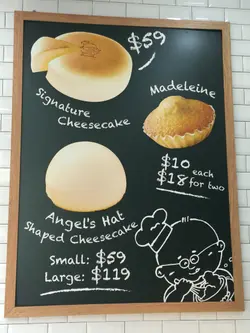 $59
Signature
Cheesecake
Madeleine
$10 each
$18 for two
Angel's Hat
Shaped Cheesecake
Small: $59
Large: $119